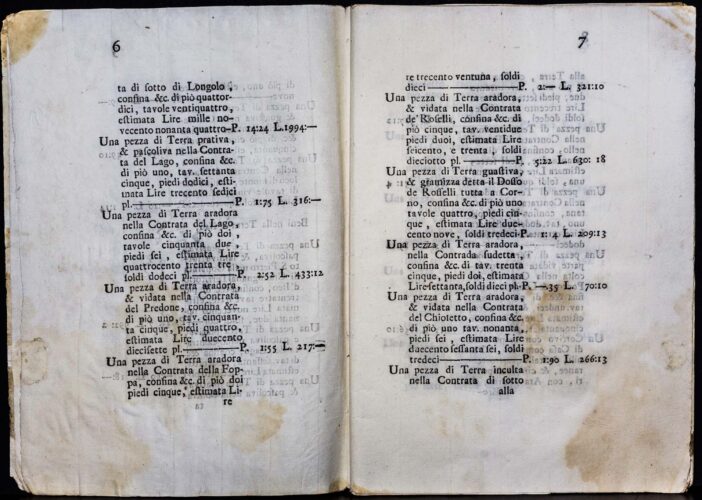 6
ta di sotto di Longolo,
confina &c. di piò quattor-
dici, tavole ventiquattro,
estimata Lire mille no-
vecento nonanta quattro-P. 14:24 L.1994:—
Una pezza di Terra prativa,
& pascoliva nella Contra-
ta del Lago, confina &c.
di piò uno, tav. settanta
cinque, piedi dodici, esti-
mata Lire trecento sedici
pl.———P. 1:75 L. 316:—
Una pezza di Terra aradora
nella Contrata del Lago,
confina &c. di piò doi,
tavole cinquanta due,
piedi sei, estimata Lire
quattrocento trenta tre
soldi dodeci pl.———P. 2:52 L. 433:12
Una pezza di Terra aradora,
& vidata nella Contrata
del Predone, confina &c.
di piò uno, tav. cinquan-
ta cinque, piedi quattro,
estimata Lire duecento
diecisette pl.———P. 1:55 L. 217:—
Una pezza di Terra aradora
nella Contrata della Fop-
pa, confina &c. di piò doi
piedi cinque, estimata Li-
re
7
re trecento ventuna, soldi
dieci———P. 2:— L. 321:10
Una pezza di Terra aradora,
& vidata nella Contrata
de' Roselli, confina &c. di
piò cinque, tav. ventidue
piedi duoi, estimata Lire
seicento, e trenta, soldi
dieciotto pl.———P. 5:22 L. 630: 18
Una pezza di Terra guastiva,
& giamizza detta il Dosso
de Rosselli tutta a Cor-
no, confina &c. di piò uno
tavole quattro, piedi cin-
que, estimata Lire due-
cento nove, soldi tredeci-P. 1:14 L. 209:13
Una pezza di Terra aradora,
nella Contrada sudetta,
confina &c. di tav. trenta
cinque, piedi doi, estimata
Lire settanta, soldi dieci pl.-P.—35 L. 70:10
Una pezza di Terra aradora,
& vidata nella Contrata
del Chioletto, confina &c.
di piò uno tav. nonanta,
piedi sei, estimata Lire
duecento sessanta sei, soldi
tredeci———P. 1:90 L. 266:13
Una pezza di Terra inculta
nella Contrata di sotto
alla